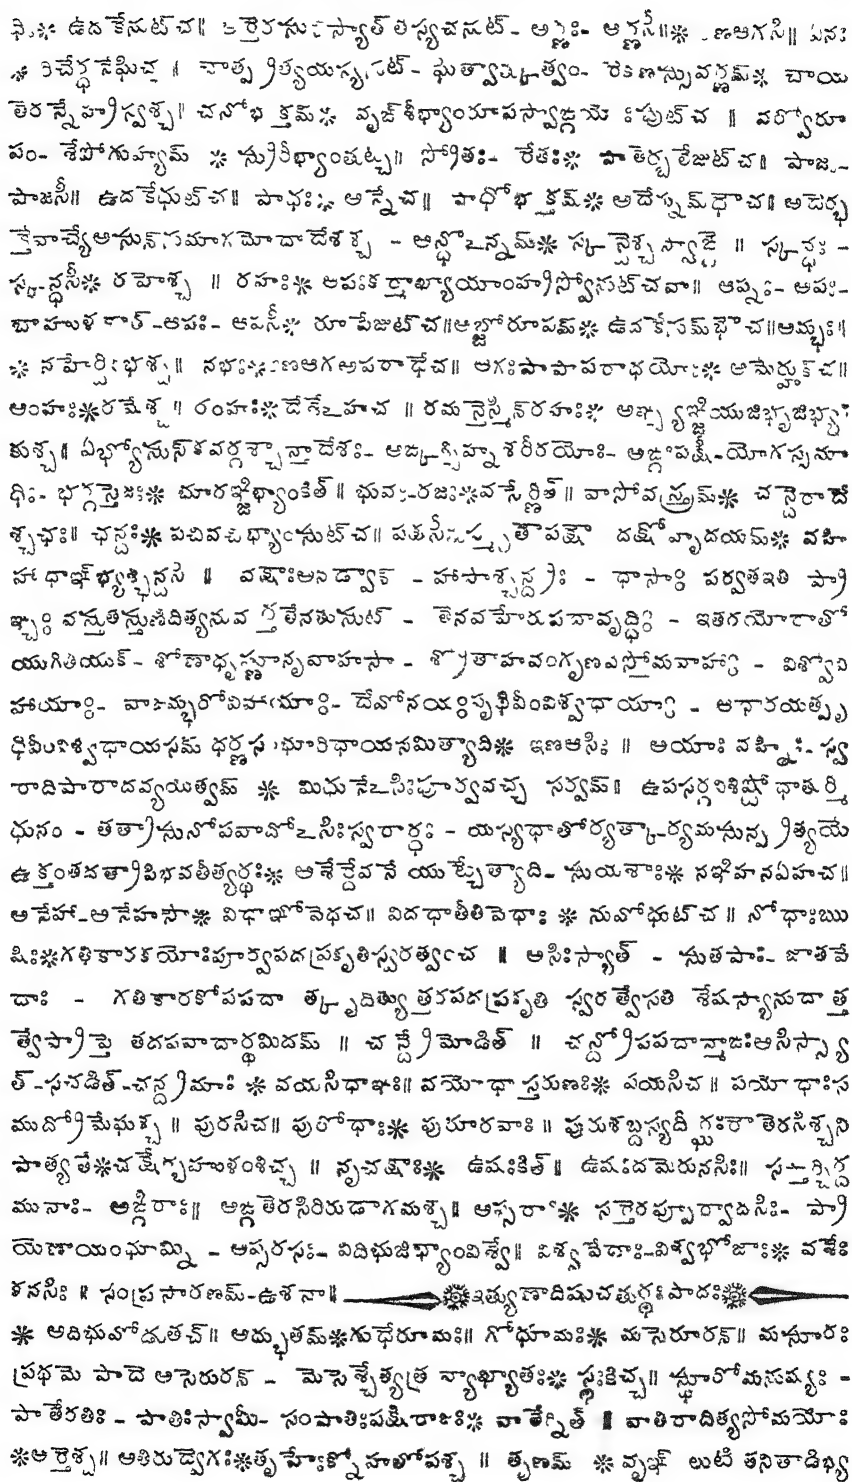 ధిః❋ ఉదకేనుట్చ॥ అర్తెరనుదస్యాత్ తస్యచనుట్ - అర్ణః - అర్ణసీ॥❋ ఇణఆగసి॥ ఏనః
❋ రిచేర్ధనేఘిచ్చ ॥ చాత్ప్రత్యయస్యనుట్ - ఘిత్వాత్కుత్వం - రేక్ణస్సువర్ణమ్❋ చాయ
తెరన్నేహ్రస్వశ్చ॥ చనోభక్తమ్❋ వృఙ్శీభ్యాంరూపస్వాఙ్గయోః పుట్చ ॥ వర్పోరూ
పం - శేపోగుహ్యమ్ ❋ స్రురీభ్యాంతుట్చ॥ స్రోతః - రేతః❋ పాతెర్బలేజుట్చ॥ పాజః -
పాజసీ॥ ఉదకేథుట్చ॥ పాథః❋ అన్నేచ॥ పాథోభక్తమ్❋ అదేర్నుమ్ధౌచ॥ అదెర్భ
క్తేవాచ్యేఅసున్నుమాగమోదాదేశశ్చ - అన్ధోఽన్నమ్❋ స్కన్దెశ్చస్వాఙ్గే ॥ స్కన్ధః -
స్కన్ధసీ❋ రహెశ్చ ॥ రహః❋ ఆపఃకర్మాఖ్యాయాంహ్రస్వోనుట్చవా॥ ఆప్నః - అపః -
బాహుళకాత్ - ఆపః - ఆపసీ❋ రూపేజుట్చ॥అబ్జోరూపమ్❋ ఉదకేనుమ్భౌచ॥అమ్భః॥
❋ నహేర్దివిభశ్చ॥ నభః❋ఇణఆగఅపరాధేచ॥ ఆగఃపాపాపరాధయోః❋ అమేర్హుక్చ॥
అంహః❋రమేశ్చ॥ రంహః❋దేశేఽహచ ॥ రమన్తెస్మిన్రహః❋ అఞ్చ్యఞ్జియుజిభృజిభ్యః
కుశ్చ॥ ఏభ్యోసున్కవర్గశ్చాన్తాదేశః - అఙ్కశ్చిహ్నశరీరయోః - అఙ్గఃపక్షీ - యోగస్సమా
ధిః - భర్గస్తెజః❋ భూరఞ్జిభ్యాంకిత్॥ భువః - రజః❋వసేర్ణిత్॥ వాసోవస్త్రమ్❋ చన్దెరాదే
శ్చఛః॥ ఛన్దః❋ పచివచిభ్యాంసుట్చ॥ పక్షసీతుస్మృతౌపక్షౌ దక్షోహృదయమ్❋ వహి
హాధాఞ్భ్యశ్ఛన్దసి ॥ వక్షాఃఅనడ్వాన్ - హాసాశ్చన్ద్రః - ధాసాః పర్వతఇతి ప్రా
ఞ్చః వస్తుతస్తుణిదిత్యనువర్తతేనతుసుట్ - తెనవహేరుపధావృద్ధిః - ఇతరయోరాతో
యుగితియుక్ - శోణాధృష్ణూనృవాహసా - శ్రోతాహవంగృణతఃస్తోమవాహాః - విశ్వోవి
హాయాః - వాజమ్భరోవిహాయాః - దేవోనయఃపృథివీంవిశ్వధాయాః - అధారయత్పృ
థివీంవిశ్వధాయసమ్ ధర్ణసంభూరిధాయసమిత్యాది❋ ఇణఆసిః ॥ అయాః వహ్నిః - స్వ
రాదిపాఠాదవ్యయత్వమ్ ❋ మిథునేఽసిఃపూర్వవచ్చ సర్వమ్॥ ఉపసర్గవిశిష్టో ధాతుర్మి
థునం - తత్రాసునోపవాదోఽసిఃస్వరార్థః - యస్యధాతోర్యత్కార్యమసున్ప్రత్యయే
ఉక్తంతదత్రాపిభవతీత్యర్థః❋ అశేర్దేవనే యుట్చేత్యాది - సుయశాః❋ నఞిహనఏహచ॥
అనేహా - అనేహసౌ❋ విధాఞోవెధచ॥ విదధాతీతివెధాః ❋ నువోధుట్చ॥ నోధాఃఋ
షిః❋గతికారకయోఃపూర్వపదప్రకృతిస్వరత్వంచ ॥ అసిఃస్యాత్ - సుతపాః - జాతవే
దాః - గతికారకోపపదా త్కృదిత్యుత్తరపదప్రకృతి స్వరత్వేసతి శేషస్యానుదాత్త
త్వేప్రాప్తె తదపవాదార్థమిదమ్ ॥ చన్ద్రేమోడిత్ ॥ చన్ద్రోపపదాన్మాఙఃఅసిస్స్యా
త్ - సచడిత్ - చన్ద్రమాః ❋ వయసిధాఞః॥ వయోధా స్తరుణః❋ పయసిచ॥ పయోధాఃస
ముద్రోమేఘశ్చ॥ పురసిచ॥ పురోధాః❋ పురూరవాః॥ పురుశబ్దస్యదీర్ఘఃరౌతెరసిశ్చని
పాత్యతే❋చక్షేర్బహుళంశిచ్చ ॥ నృచక్షాః❋ ఉషఃకిత్॥ ఉషఃదమెరునసిః॥ సప్తార్చిర్ద
మునాః - అఙ్గిరాః॥ అఙ్గతెరసిరిరుడాగమశ్చ॥ అప్సరాః❋ సర్తెరప్పూర్వాదసిః - ప్రా
యెణాయంభూమ్ని - అప్సరసః - విదిభుజిభ్యాంవిశ్వే॥ విశ్వవేదాః - విశ్వభోజాః❋ వశేః
కనసిః ॥ సంప్రసారణమ్ - ఉశనా॥ ❋ఇత్యుణాదిషుచతుర్థఃపాదః❋
❋ అదిభువోడుతచ్॥ అద్భుతమ్❋గుధేరూమః॥ గోధూమః❋ మసెరూరన్॥ మసూరః
ప్రథమె పాదె అసెరురన్ - మెసెశ్చేత్యత్ర వ్యాఖ్యాతః❋ స్థఃకిచ్చ॥ స్థూరోమనుష్యః -
పాతేరతిః - పాతిఃస్వామీ - సంపాతిఃపక్షిరాజః❋ వాతేర్నిత్ ॥ వాతిరాదిత్యసోమయోః
❋అర్తెశ్చ॥ అతిరుద్వెగః❋తృహేఃక్నోహలోపశ్చ ॥ తృణమ్ ❋ వృఞ్ లుటి తనితాడిభ్య